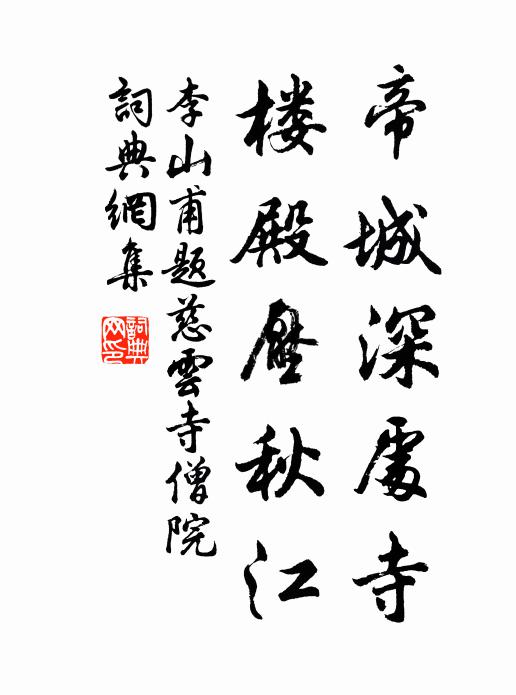 帝城深處寺
楼殿壓秋江
李山甫題慈雲寺僧院
詞典網集
詞典網印